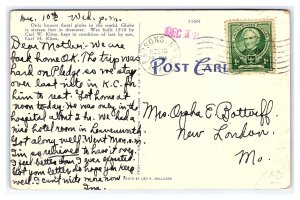 Dec 10th Wed. p.m.
Only known floral globe in the world. Globe
is sixteen feet in diameter. Was built 1938 by
Carl W. Kline, kept in condition of late by son,
Carl H. Kline.
Dear Mother: We are
back home O.K. The trip was
hard on Pledge so we stay
over last nite in K.C. for
him to rest. Got home at
noon today. He was only in the
hospital about 2 hr. We had a
nice hotel room in Leavenworth.
Got along well. Went Mon. a.m.
I'm so relieved to have it over.
I feel better than I ever expected.
Got your letter, do hope you keep
well. I can't write more now
DEC 1
POST CARD
Mrs. Orpha E. Bottorff
New London
Mo.